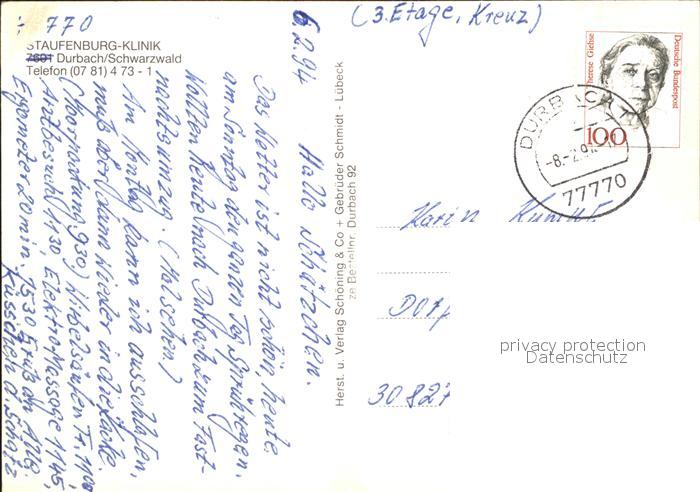 77770
(3. Etage, Kreuz)
STAUFENBURG-KLINIK
7601 Durbach/Schwarzwald
Telefon (07 81) 4 73 - 1
6.2.94 Hallo Schätzchen.
Das Wetter ist nicht schön, heute
am Sonntag den ganzen Tag Sprühregen.
Wollten heute nach Durbach zum Fast-
nachtsumzug. (Matschen)
Am Montag kann ich ausschlafen,
muß aber dann wieder in die
930) Wirbelsäulen Tr. 1100
Arztbesuch 1130, Elektro+Massage 1145,
Ergometer 20 min. 1530 Gruß an Alle.
Küsschen d. Schatz
Herst. u. Verlag Schöning & Co + Gebrüder Schmidt - Lübeck
Bestellnr. Durbach 92
Therese Giehse
Deutsche Bundespost
100
DURBACH
-8.-2.94
77770
Karin
30827
privacy protection
Datenschutz